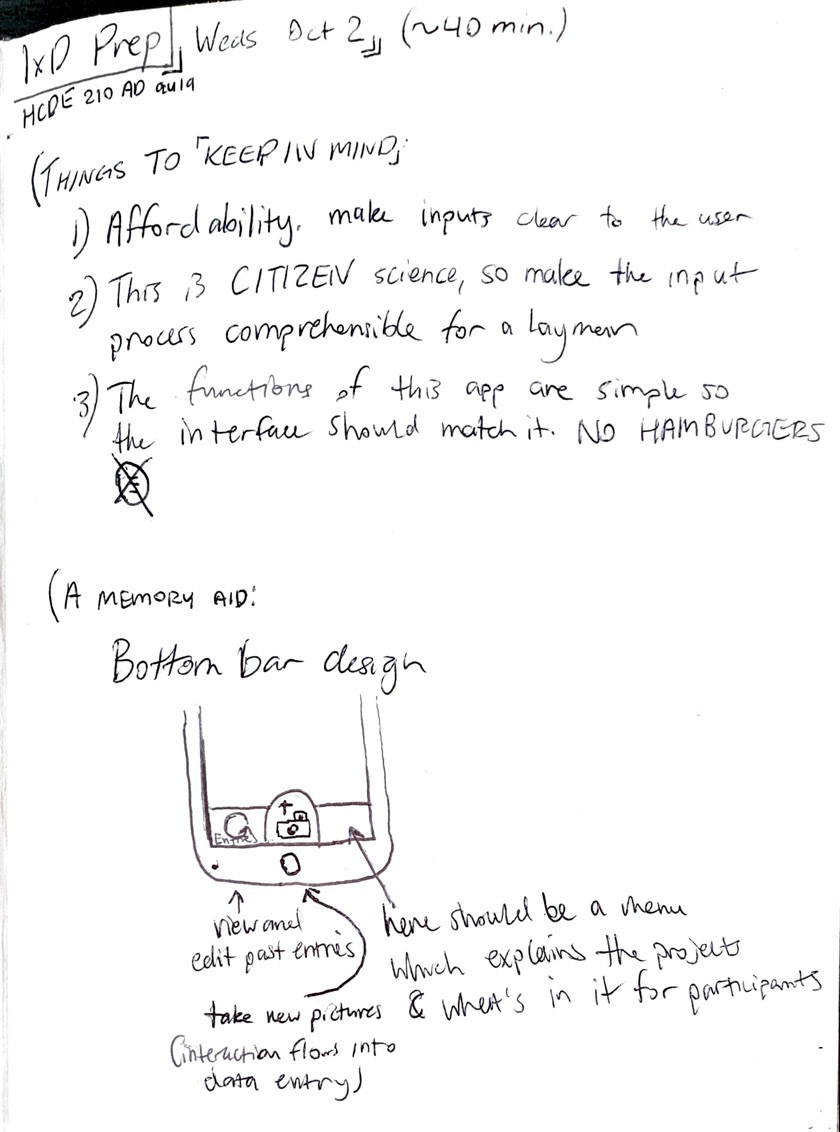 IxD Prep」 Weds Oct 2」 (~40 min.)
HCDE 210 AD au19
(THINGS TO 「KEEP IN MIND」:
1) Affordability. make inputs clear to the user
2) This is CITIZEN science, so make the input
process comprehensible for a layman
3) The functions of this app are simple so
the interface should match it. NO HAMBURGERS
(A MEMORY AID:
Bottom bar design
+
Entries
view and
edit past entries
here should be a menu
which explains the project
& what's in it for participants
take new pictures
(interaction flows into
data entry)